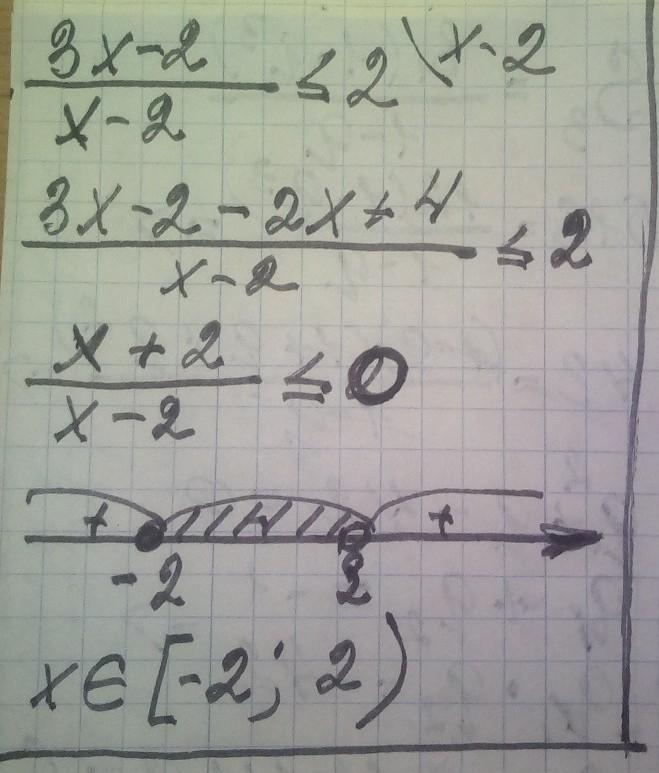 3x-2
x-2
≤ 2 \ x-2
3x-2-2x+4
x-2
≤ 2
x+2
x-2
≤ 0
+ - +
-2 2
x∈[-2; 2)